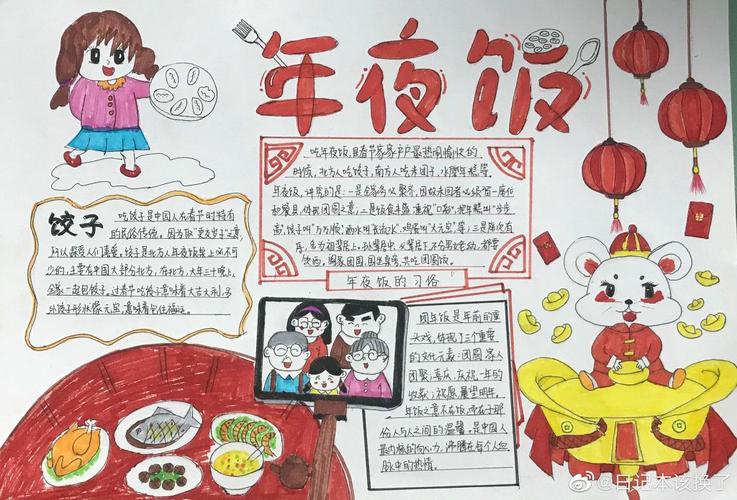 年夜饭
吃年夜饭,是春节家家户户最热闹愉快的
时候,北方人吃饺子,南方人吃
年夜饭,讲究的是:一是全家务必聚齐,因故未回者必须留一座位
和餐具,体现团圆之意;二是饭食丰盛,重视"口彩",把年糕叫"步步
高",饺子叫"万万顺",酒水叫"长流水",鸡蛋叫"大元宝"等;三是座次有
序,
饮酒,阖家团圆,共吃团圆饭。
年夜饭的习俗
饺子
吃饺子是中国人在春节时特有
的民俗传统。因为取"更岁交子"之意,
所以很受人们喜爱。饺子是北方人年夜饭桌上必不可
少的,主要在中国大部分北方,在北方,大年三十晚上,
全家一起包饺子。过春节吃饺子意味着大吉大利,另
外饺子形状像元宝,意味着包住福运。
团年饭是年前的重
头戏,体现了三个重要
的文化元素:团圆,家人
团聚;喜庆,庆祝一年的
收获;祝愿,展望明年。
年饭之意不在饭,而在于那
份人与人之间的温馨。是中国人
最内核的向心力,沸腾在每个人血
脉中的热情。
@日记本该换了